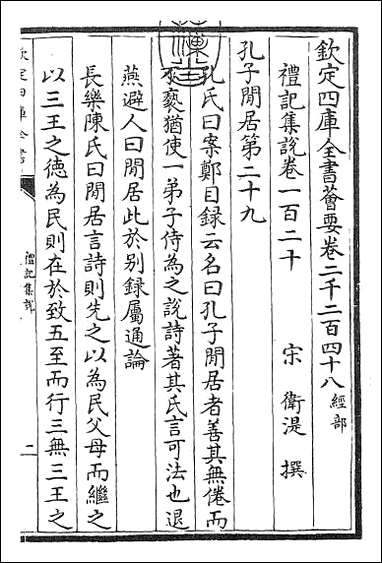 欽定四庫全書薈要卷二千二百四十八 經部
禮記集說卷一百二十 宋 衛湜 撰
孔子閒居第二十九
孔氏曰案鄭目録云名曰孔子閒居者善其無倦而
不褻猶使一弟子侍為之說詩著其氏言可法也退
燕避人曰閒居此於別録屬通論
長樂陳氏曰閒居言詩則先之以為民父母而繼之
以三王之德為民則在於致五至而行三無三王之
欽定四庫全書
禮記集說